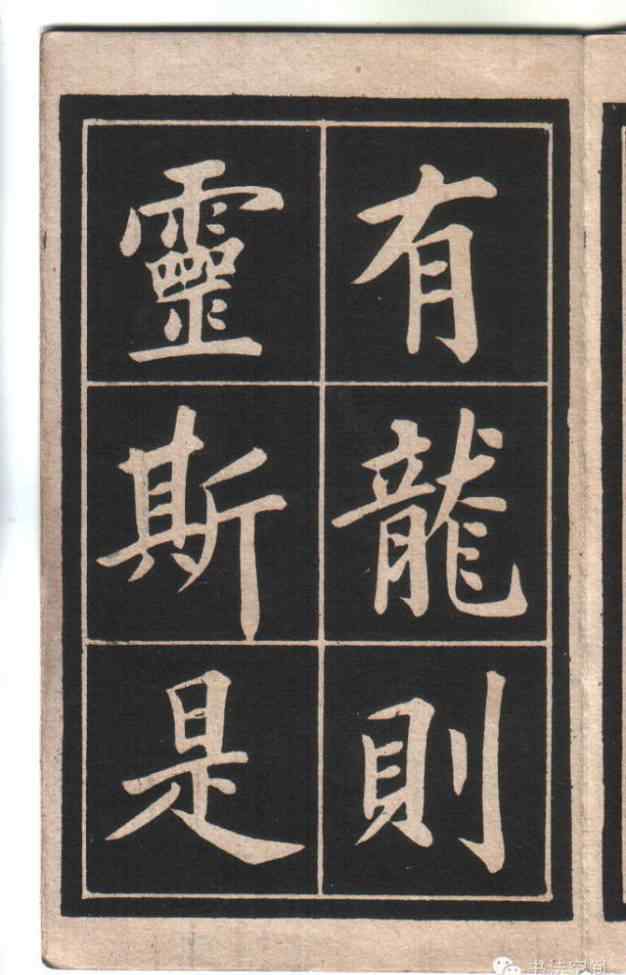 有龍則
靈斯是
书法空间